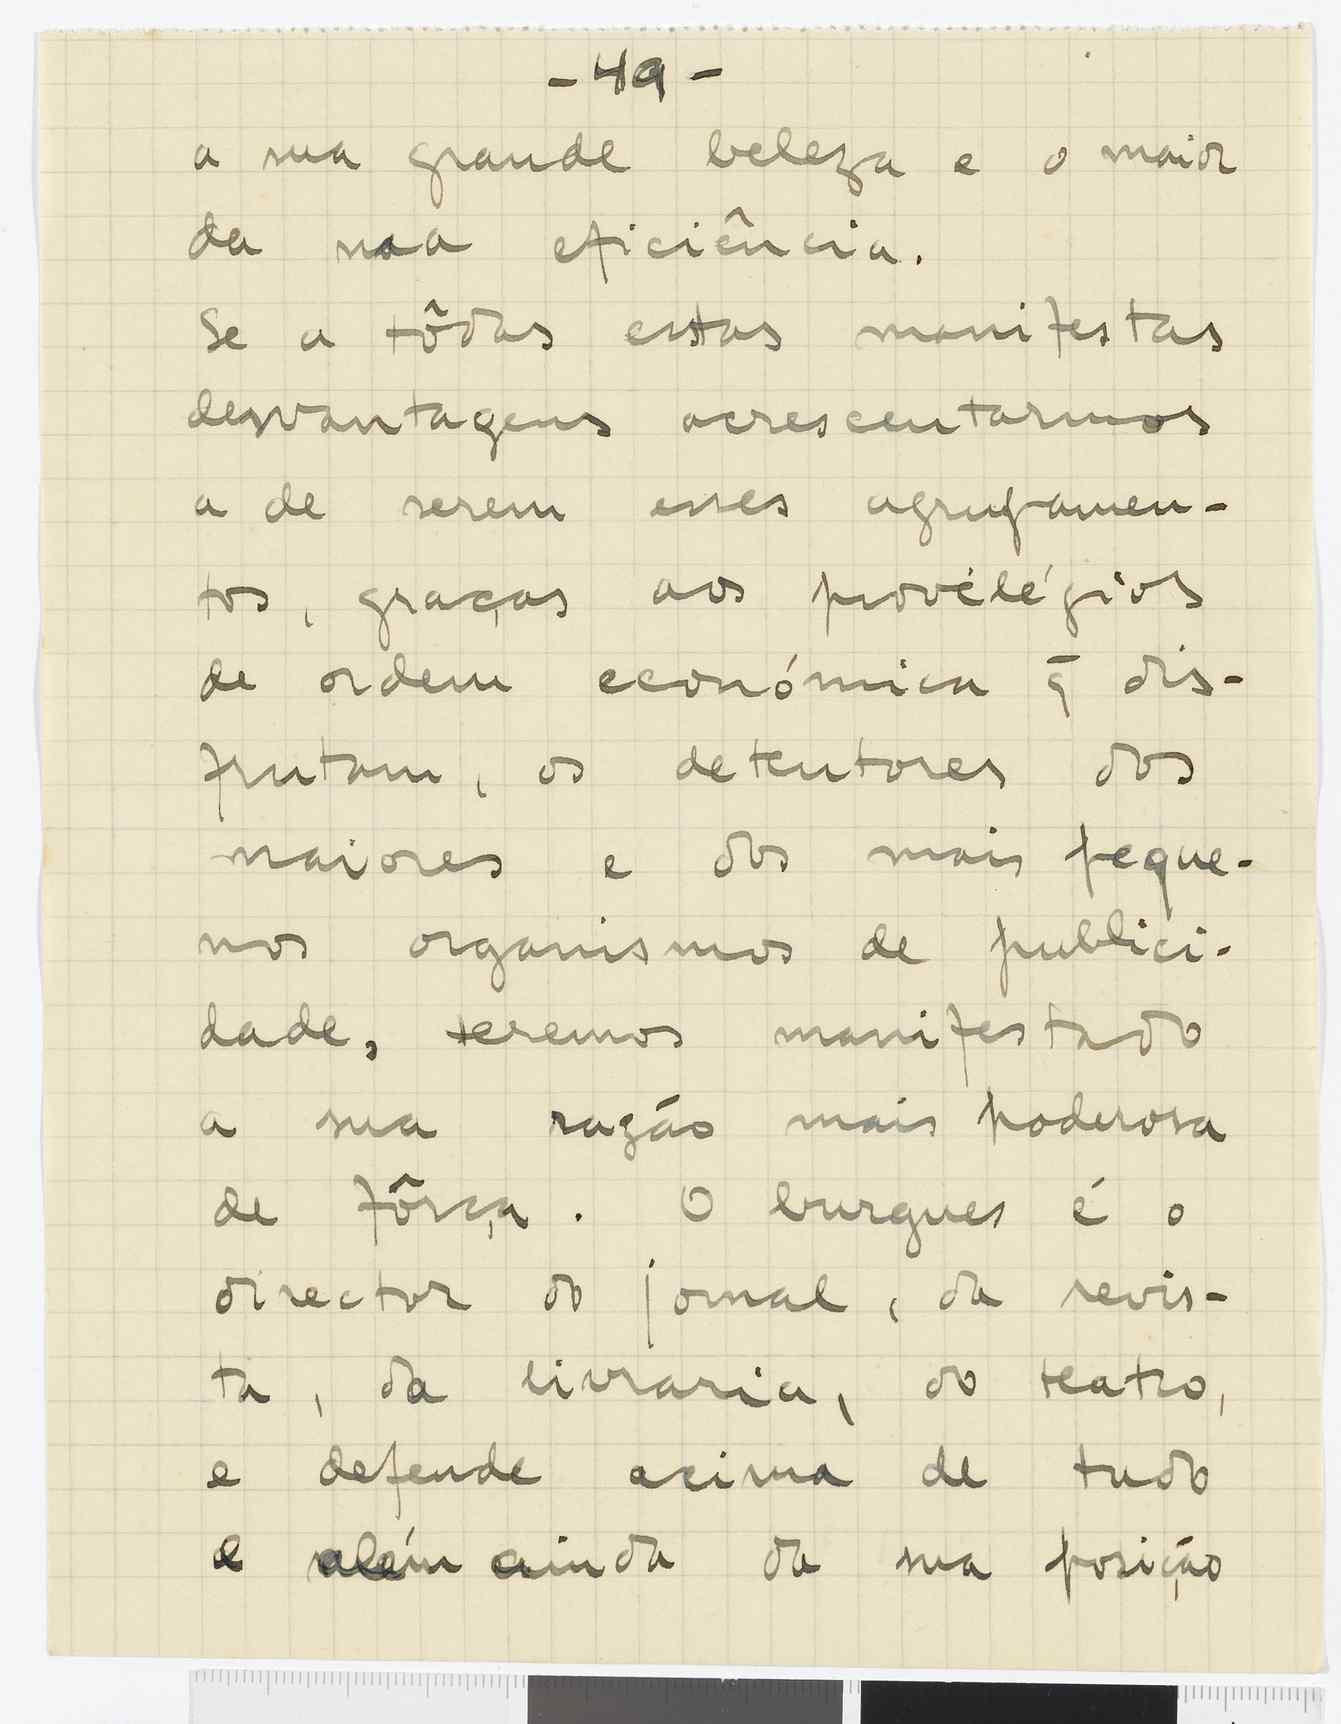 - 49 -
a sua grande beleza e o maior
da sua eficiência.
Se a tôdas estas manifestas
desvantagens acrescentarmos
a de serem esses agrupamen-
tos, graças aos provélégios
de ordem económica q̄ dis-
frutam, os detentores dos
maiores e dos mais peque-
nos organismos de publici-
dade, teremos manifestado
a sua razão mais poderosa
de fôrça. O burgues é o
director do jornal, da revis-
ta, da livraria, do teatro,
e defende acima de tudo
e além ainda da sua posição